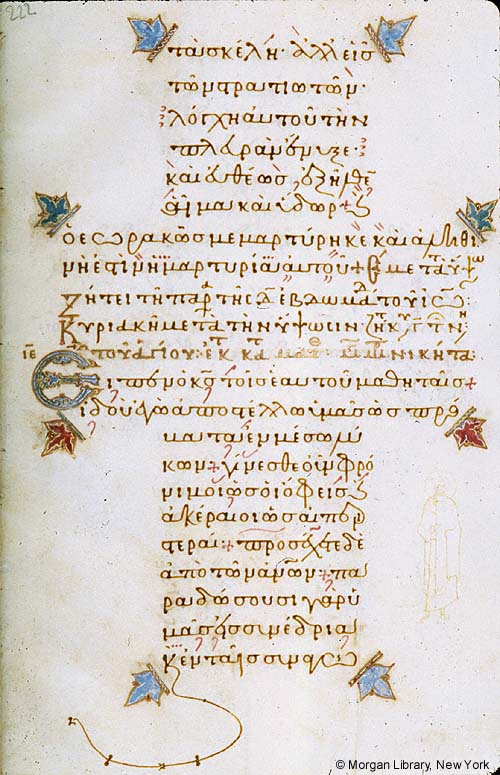 222
τὰ σκέλη· ἀλλ εἷς
τῶν στρατιωτῶν·
λόγχη αὐτοῦ τὴν
πλευρὰν ἔνυξε·
καὶ εὐθέως ἐξῆλθεν
αἷμα καὶ ὕδωρ + καὶ
ὁ ἑωρακὼς μεμαρτύρηκε καὶ ἀληθι
νή ἐστιν ἡ μαρτυρία αὐτοῦ +
ζήτει τῇ τῆς
Κυριακῆ μετὰ τὴν ὕψωσιν
τοῦ ἁγίου Νικήτα
Εἶπεν ὁ κς τοῖς ἑαυτοῦ μαθηταῖς +
ἰδοὺ ἐγὼ ἀποστέλλω ὑμᾶς ὡς πρό
βατα ἐν μέσω λύ
κων + γίνεσθε οὖν φρό
νιμοι ὡς οἱ ὄφεις καὶ
ἀκέραιοι ὡς αἱ περισ
τεραί + προσέχετε δὲ
ἀπὸ τῶν ἀνων + πα
ραδώσουσι γὰρ ὑ
μᾶς εἰς συνέδρια
καὶ ἐν ταῖς συναγω
© Morgan Library, New York